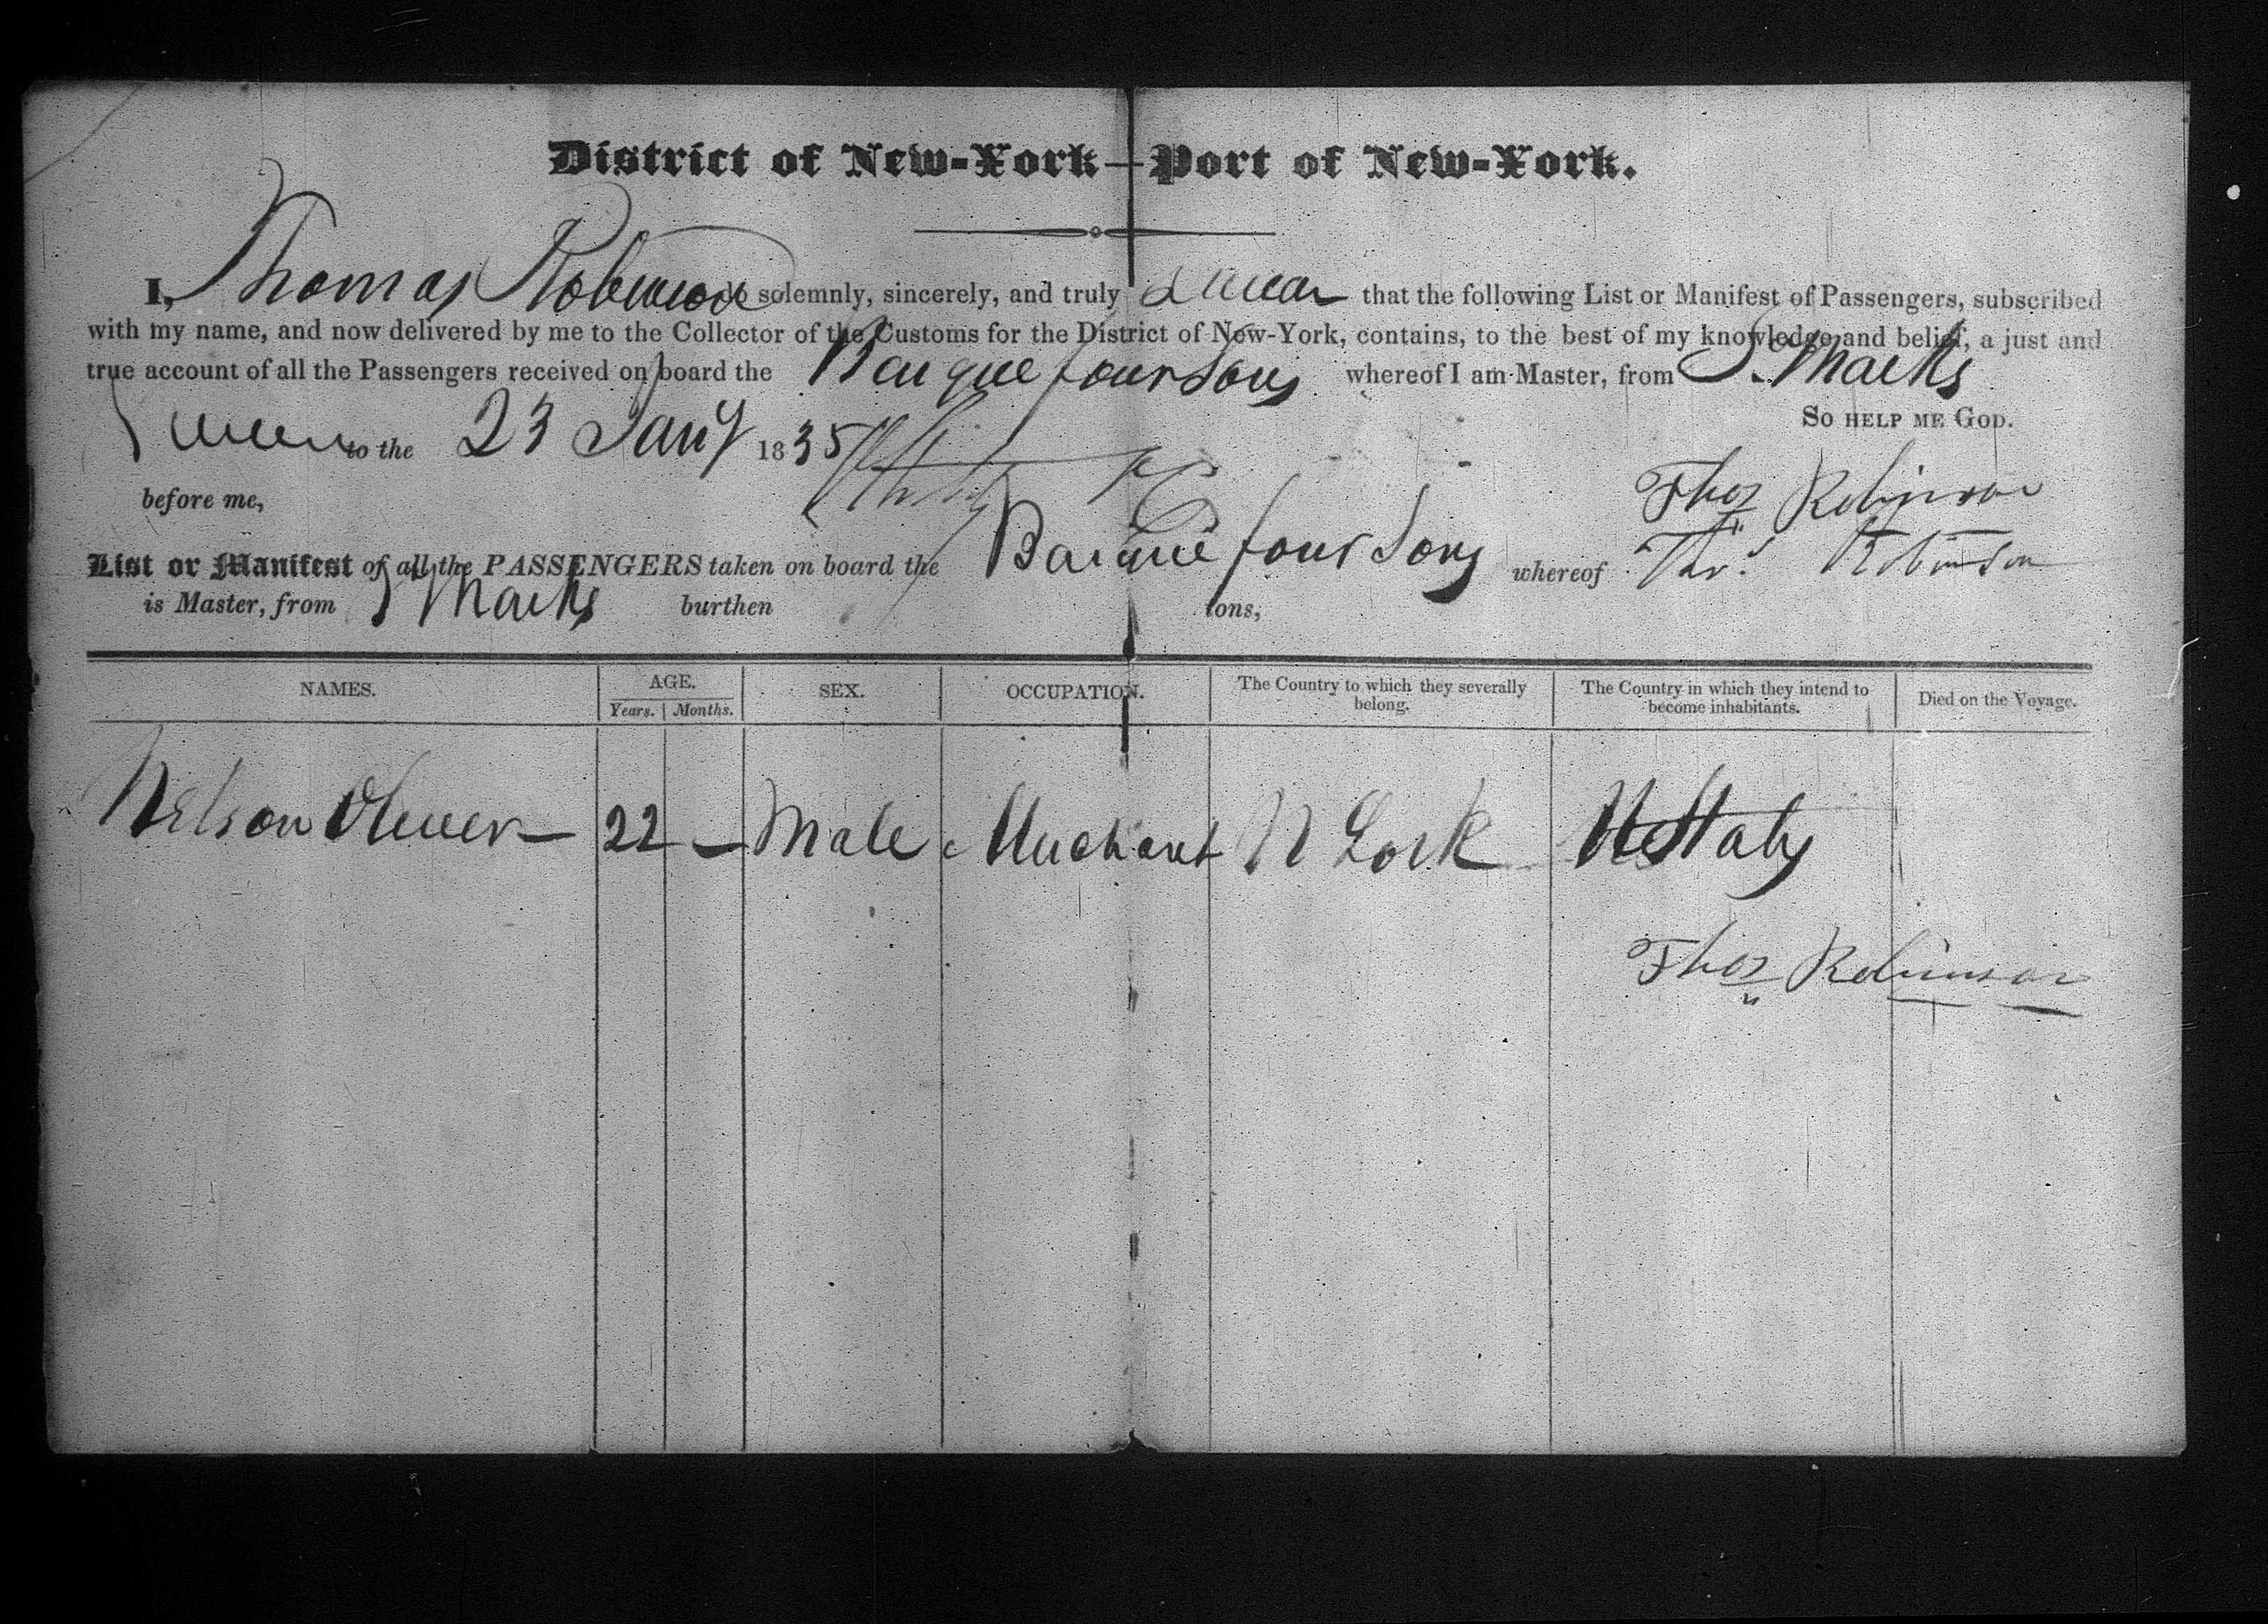 District of New-York—Port of New-York.
I, Thomas Robinson do solemnly, sincerely, and truly Swear that the following List or Manifest of Passengers, subscribed
with my name, and now delivered by me to the Collector of the Customs for the District of New-York, contains, to the best of my knowledge and belief, a just and
true account of all the Passengers received on board the Barque four Sons whereof I am Master, from S. Marks
So help me God.
Sworn to the 23 Jany 1835
Thos Robinson
before me,
List or Manifest of all the PASSENGERS taken on board the Barque four Sons whereof Thos. Robinson
is Master, from S Marks burthen tons,
NAMES. AGE. SEX. OCCUPATION. The Country to which they severally belong. The Country in which they intend to become inhabitants. Died on the Voyage.
Years. Months.
Nelson Oliver — 22 — Male Merchant N York U States
Thos Robinson